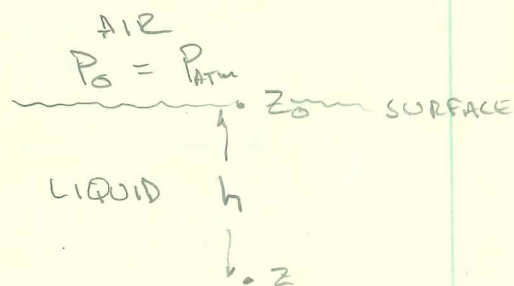 AIR
P₀ = P_ATM
Z₀ SURFACE
LIQUID h
Z